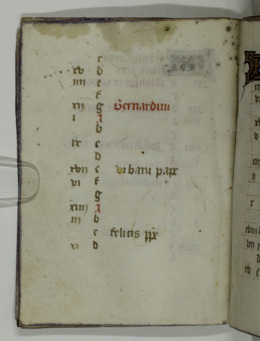 c
xv d
iiij e
f
xij g Bernardini
i A
b
ix c
d
xvij e vrbani pape
vi f
g
xiiij A
iij b
c felicis pp
d